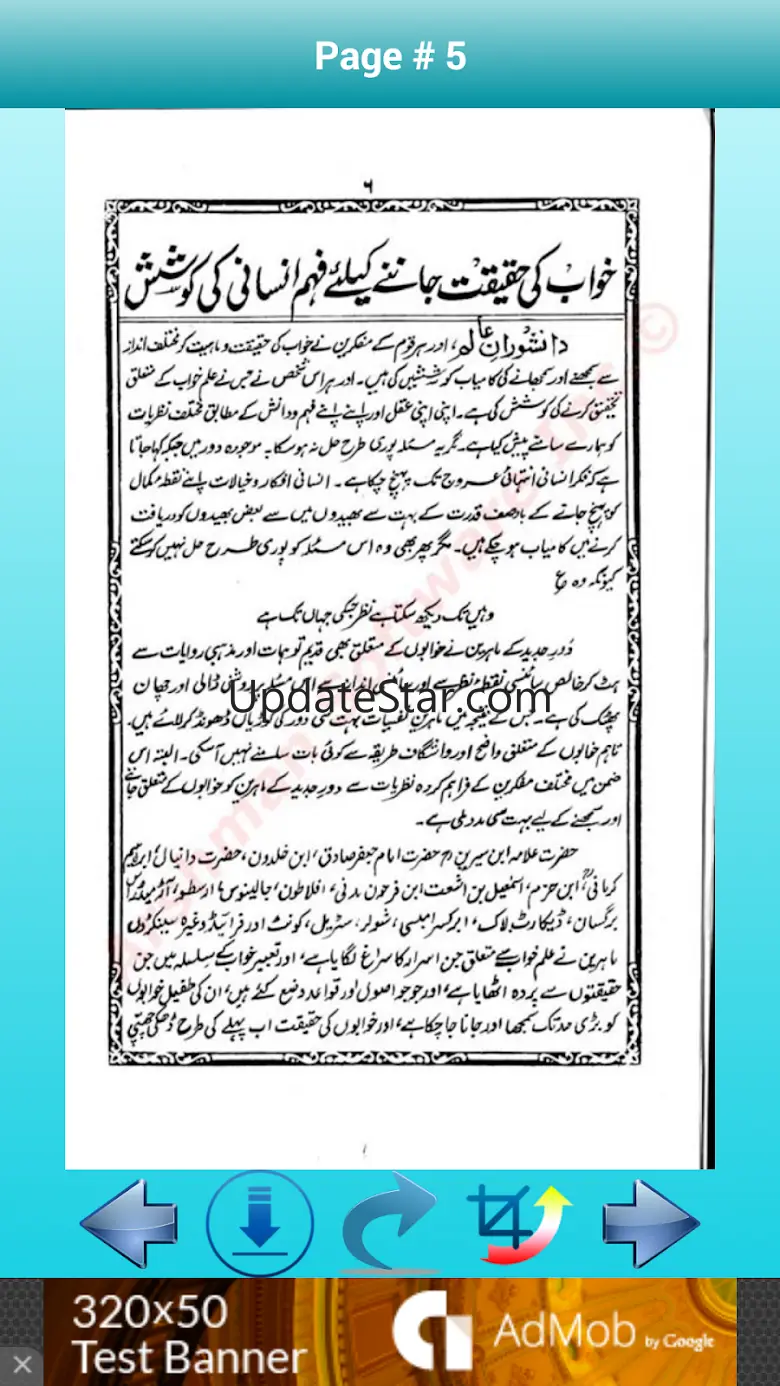 Page # 5
۶
خواب کی حقیقت جاننے کیلئے فہم انسانی کی کوشش
دانشورانِ عالم، اور ہر قوم کے مفکرین نے خواب کی حقیقت و ماہیت کو مختلف انداز
سے سمجھنے اور سمجھانے کی کامیاب کوششیں کی ہیں۔ اور ہر اس شخص نے جس نے علم خواب کے متعلق
تحقیق کرنے کی کوشش کی ہے۔ اپنی اپنی عقل اور اپنے اپنے فہم و دانش کے مطابق مختلف نظریات
کو ہمارے سامنے پیش کیا ہے۔ مگر یہ مسئلہ پوری طرح حل نہ ہو سکا۔ موجودہ دور میں جبکہ کہا جاتا
ہے کہ فکر انسانی انتہائی عروج تک پہنچ چکا ہے۔ انسانی افکار و خیالات اپنے نقطۂ کمال
کو پہنچ جانے کے باوصف قدرت کے بہت سے بھیدوں میں سے بعض بھیدوں کو دریافت
کرنے میں کامیاب ہو چکے ہیں۔ مگر پھر بھی وہ اس مسئلہ کو پوری طرح حل نہیں کر سکتے
کیونکہ وہ ع
وہیں تک دیکھ سکتا ہے نظر جسکی جہاں تک ہے
دَورِ جدید کے ماہرین نے خوابوں کے متعلق بھی قدیم توہمات اور مذہبی روایات سے
ہٹ کر خالص سائنسی نقطۂ نظر سے اور سائنسی انداز سے اس مسئلہ پر روشنی ڈالی اور چھان
پھٹک کی ہے۔ جس کے نتیجہ میں ماہرین نفسیات بہت سی دور کی کوڑیاں ڈھونڈ کر لائے ہیں۔
UpdateStar.com
تاہم خوابوں کے متعلق واضح اور واشگاف طریقہ سے کوئی بات سامنے نہیں آسکی۔ البتہ اس
ضمن میں مختلف مفکرین کے فراہم کردہ نظریات سے دورِ جدید کے ماہرین کو خوابوں کے متعلق جاننے
اور سمجھنے کے لیے بہت سی مدد ملی ہے۔
حضرت علامہ ابن سیرین حضرت امام جعفر صادق، ابن خلدون، حضرت دانیال، ابراہیم
کرمانی، ابن حزم، اسمٰعیل بن اشعت ابن فرحون مدنی، افلاطون، جالینوس، ارسطو،
برگسان، ڈیکارٹ، بلاک، شولر، سٹریل، کونٹ اور فرائیڈ وغیرہ سینکڑوں
ماہرین نے علم خواب سے متعلق جن اسرار کا سراغ لگایا ہے، اور تعبیر خواب کے سلسلہ میں جن
حقیقتوں سے پردہ اٹھایا ہے، اور جو جو اصول اور قواعد وضع کئے ہیں، ان کی طفیل خوابوں
کو بڑی حد تک سمجھا اور جانا جا چکا ہے، اور خوابوں کی حقیقت اب پہلے کی طرح ڈھکی چھپی
320x50
Test Banner
AdMob by Google